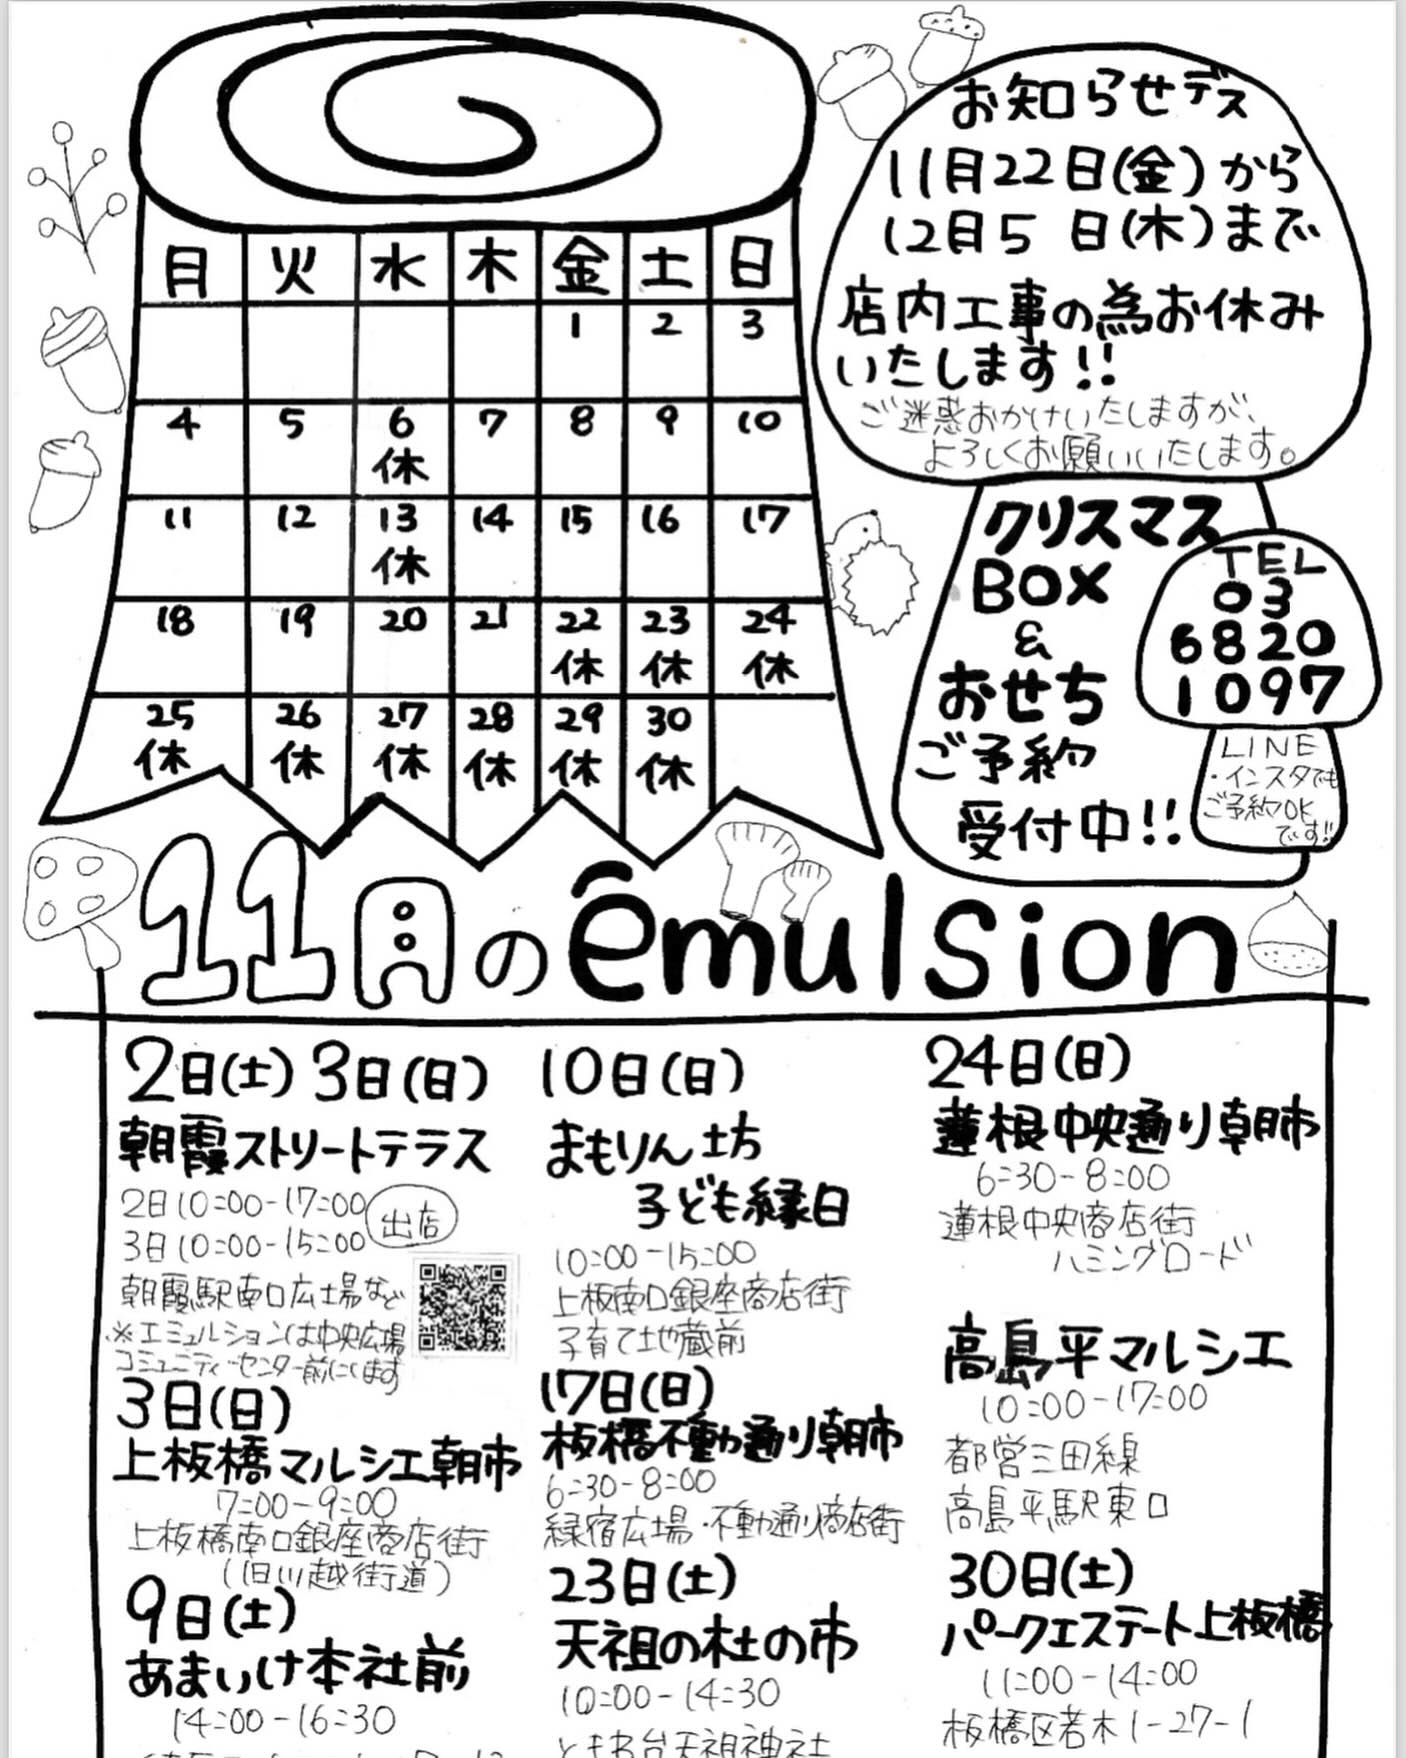 お知らせデス
11月22日(金)から
12月5日(木)まで
店内工事の為お休み
いたします!!
ご迷惑おかけいたしますが、
よろしくお願いいたします。
月 火 水 木 金 土 日
1 2 3
4 5 6 7 8 9 10
休
11 12 13 14 15 16 17
休
18 19 20 21 22 23 24
休 休 休
25 26 27 28 29 30
休 休 休 休 休 休
クリスマス
BOX
&
おせち
ご予約
受付中!!
TEL
03
6820
1097
LINE
・インスタでも
ご予約OK
です!!
11月のêmulsion
2日(土) 3日(日)
朝霞ストリートテラス
2日10:00-17:00
3日10:00-15:00
出店
朝霞駅南口広場など
※エミュルションは中央広場
コミュニティーセンター前にいます
3日(日)
上板橋マルシェ朝市
7:00-9:00
上板橋南口銀座商店街
(旧川越街道)
9日(土)
あまいけ本社前
14:00-16:30
10日(日)
まもりん坊
子ども縁日
10:00-15:00
上板南口銀座商店街
子育て地蔵前
17日(日)
板橋不動通り朝市
6:30-8:00
緑宿広場・不動通り商店街
23日(土)
天祖の杜の市
10:00-14:30
ときわ台天祖神社
24日(日)
蓮根中央通り朝市
6:30-8:00
蓮根中央商店街
ハミングロード
高島平マルシェ
10:00-17:00
都営三田線
高島平駅東口
30日(土)
パークエステート上板橋
11:00-14:00
板橋区若木1-27-1